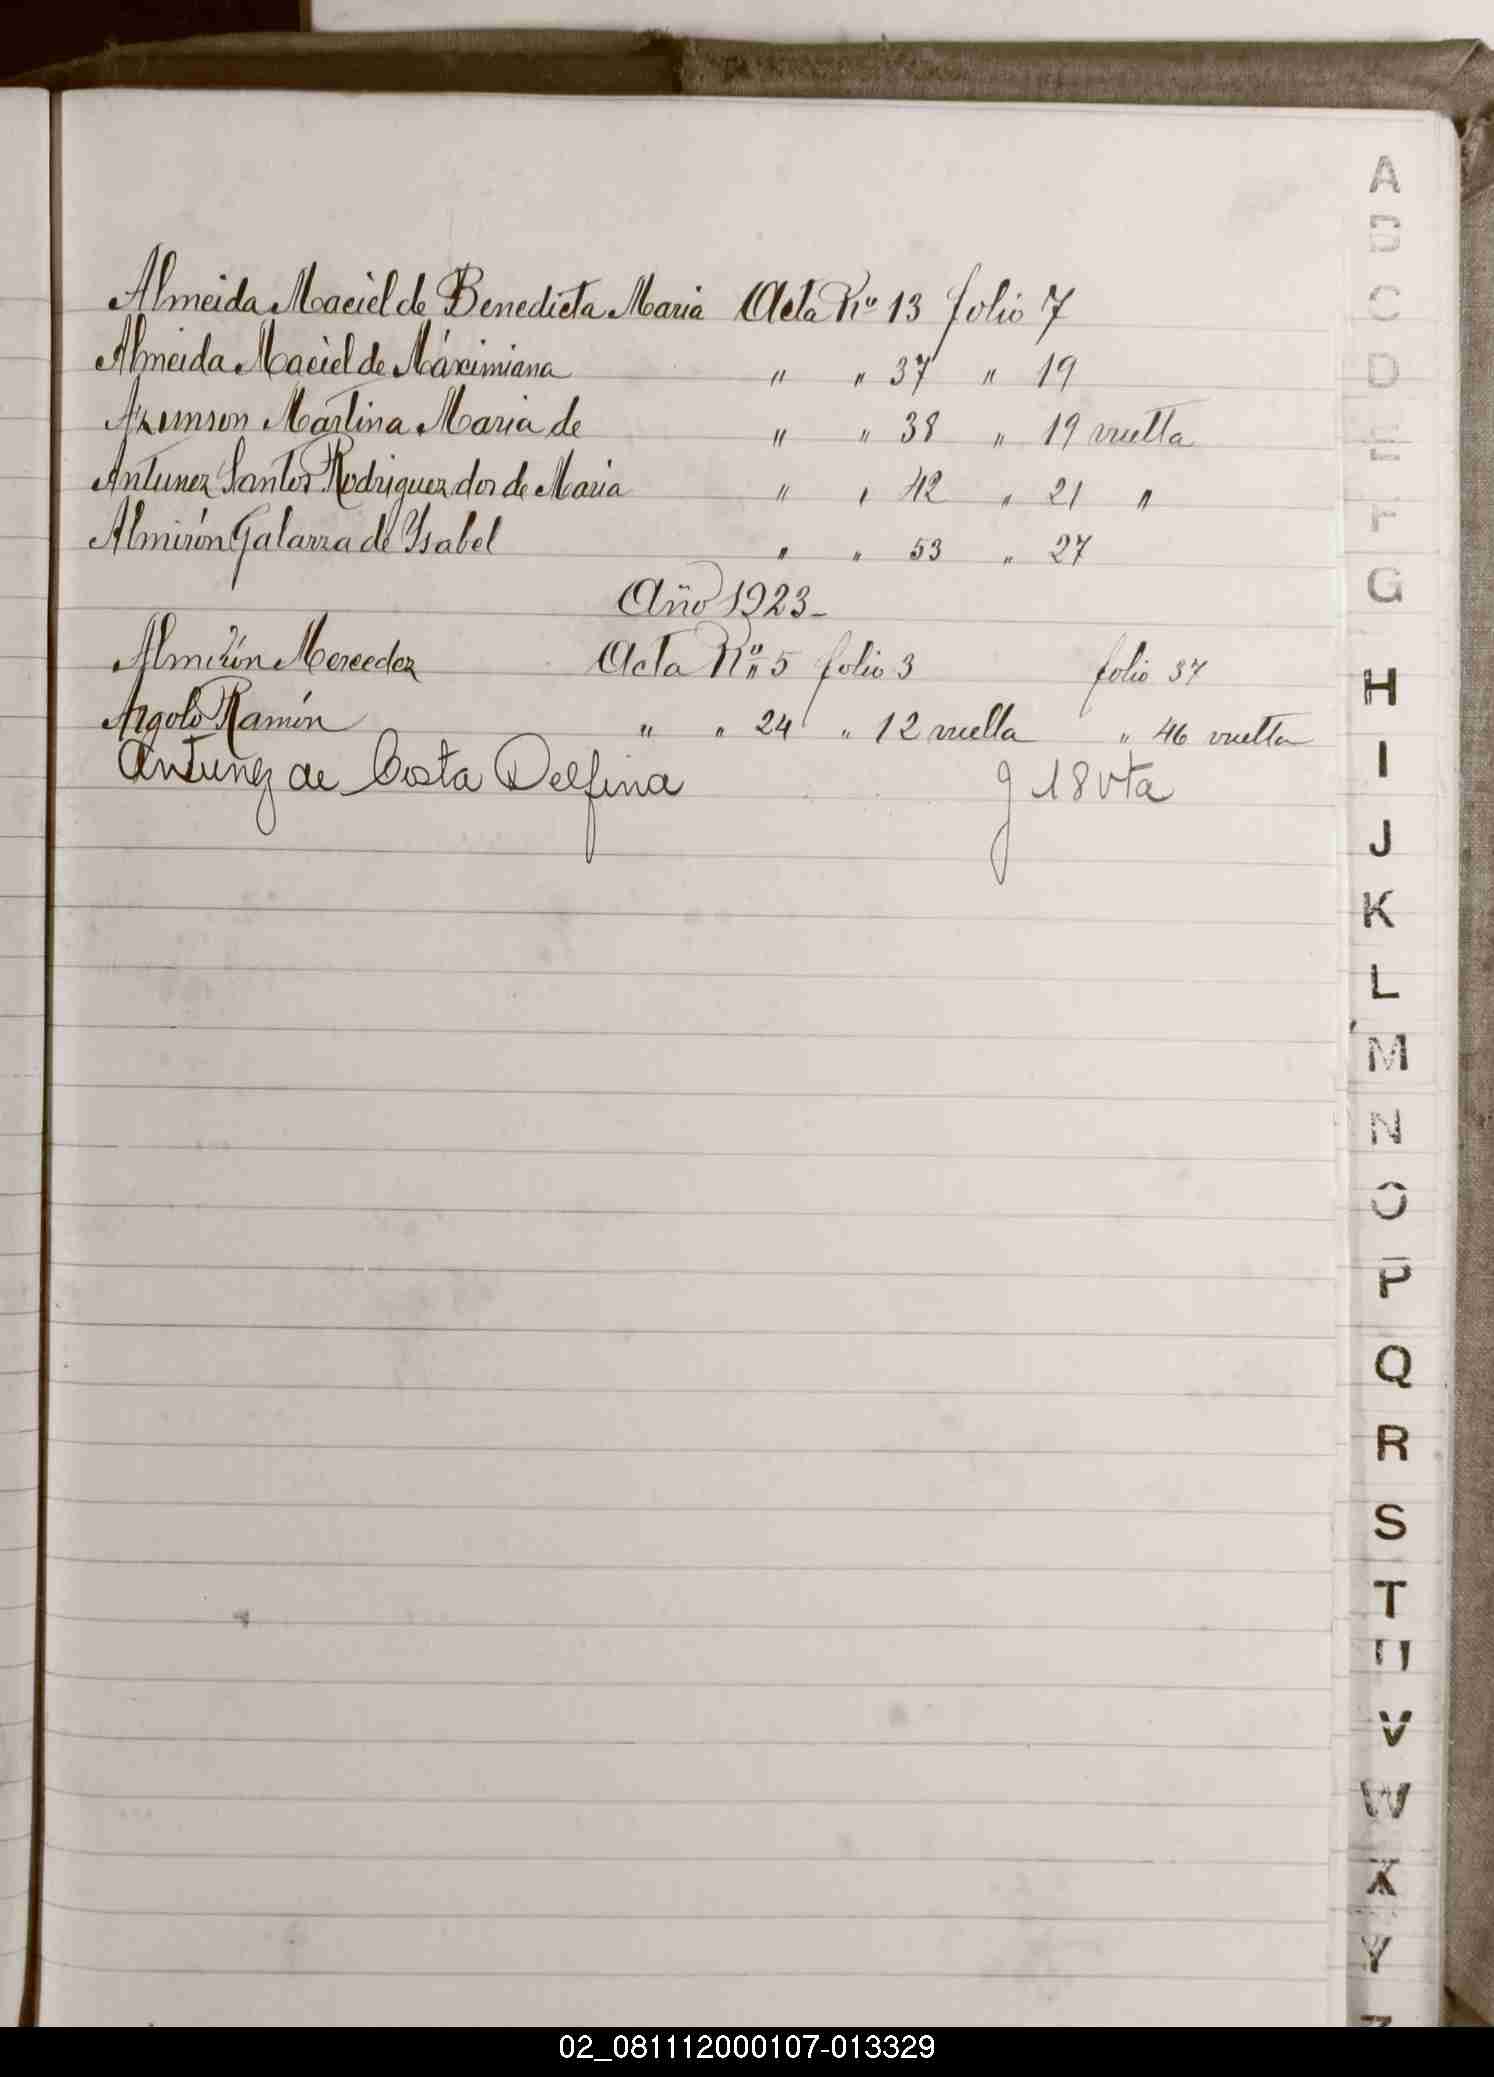 Almeida Maciel de Benedicta Maria Acta Nº 13 folio 7
Almeida Maciel de Máximiana " " 37 " 19
Martina Maria de " " 38 " 19 vuelta
Antunez Santos Rodriguez dos de Maria " " 42 " 21 "
Almirón Galarza de Ysabel " " 53 " 27
Año 1923-
Almirón Mercedez Acta Nº 5 folio 3 folio 37
Argolo Ramón " " 24 " 12 vuelta " 46 vuelta
Antunez de Costa Delfina 18 vta
A
B
C
D
E
F
G
H
I
J
K
L
M
N
O
P
Q
R
S
T
U
V
W
X
Y
Z
02_081112000107-013329